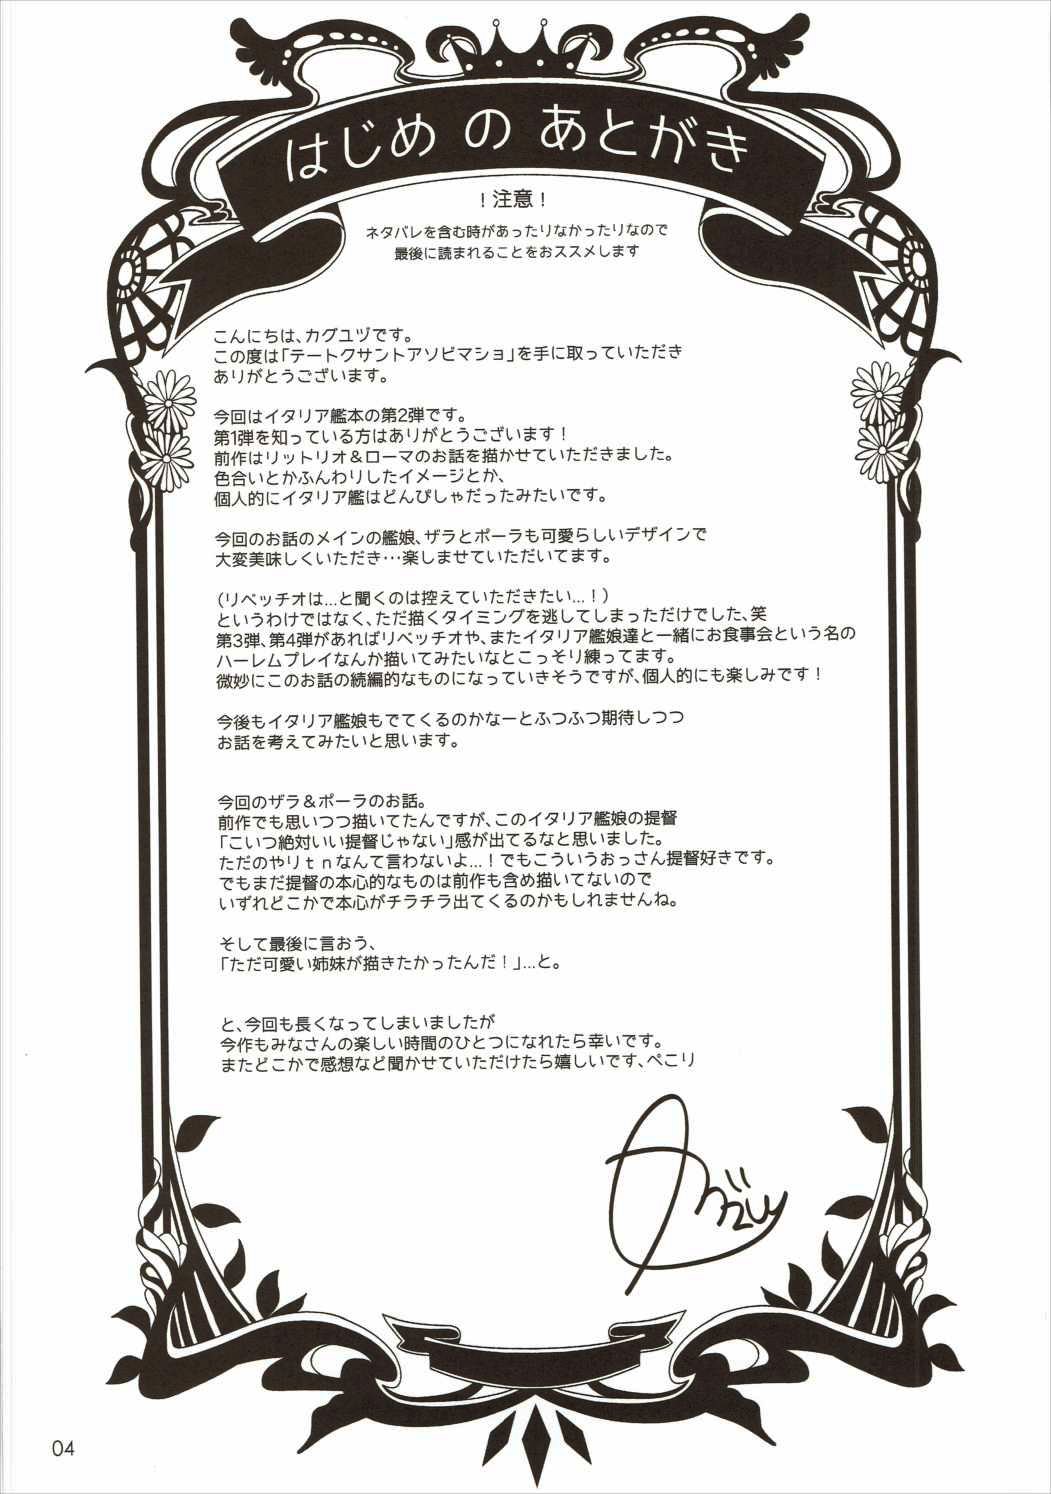 はじめ の あとがき
！注意！
ネタバレを含む時があったりなかったりなので
最後に読まれることをおススメします
こんにちは、カグユヅです。
この度は「テートクサントアソビマショ」を手に取っていただき
ありがとうございます。
今回はイタリア艦本の第2弾です。
第1弾を知っている方はありがとうございます！
前作はリットリオ＆ローマのお話を描かせていただきました。
色合いとかふんわりしたイメージとか、
個人的にイタリア艦はどんぴしゃだったみたいです。
今回のお話のメインの艦娘、ザラとポーラも可愛らしいデザインで
大変美味しくいただき…楽しませていただいてます。
（リベッチオは...と聞くのは控えていただきたい...！）
というわけではなく、ただ描くタイミングを逃してしまっただけでした、笑
第3弾、第4弾があればリベッチオや、またイタリア艦娘達と一緒にお食事会という名の
ハーレムプレイなんか描いてみたいなとこっそり練ってます。
微妙にこのお話の続編的なものになっていきそうですが、個人的にも楽しみです！
今後もイタリア艦娘もでてくるのかなーとふつふつ期待しつつ
お話を考えてみたいと思います。
今回のザラ＆ポーラのお話。
前作でも思いつつ描いてたんですが、このイタリア艦娘の提督
「こいつ絶対いい提督じゃない」感が出てるなと思いました。
ただのやりｔｎなんて言わないよ...！でもこういうおっさん提督好きです。
でもまだ提督の本心的なものは前作も含め描いてないので
いずれどこかで本心がチラチラ出てくるのかもしれませんね。
そして最後に言おう、
「ただ可愛い姉妹が描きたかったんだ！」...と。
と、今回も長くなってしまいましたが
今作もみなさんの楽しい時間のひとつになれたら幸いです。
またどこかで感想など聞かせていただけたら嬉しいです、ぺこり
04